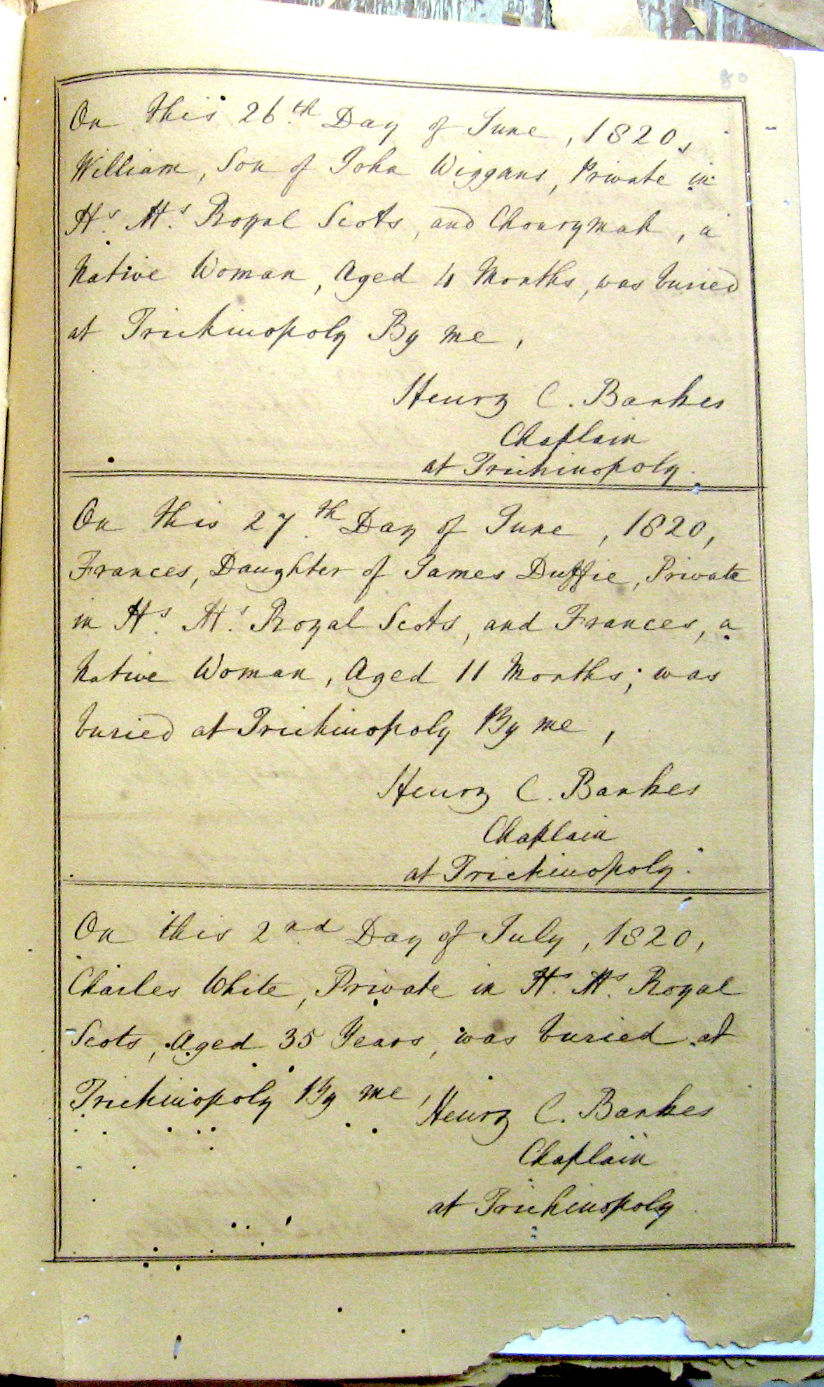 80
On this 26th Day of June, 1820,
William, Son of John Wiggans, Private in
H.s M.s Royal Scots, and Chourymah, a
Native Woman, Aged 4 Months, was buried
at Trichinopoly By me,
Henry C. Bankes
Chaplain
at Trichinopoly.
On this 27th Day of June, 1820,
Frances, Daughter of James Duffie, Private
in H.s M.s Royal Scots, and Frances, a
Native Woman, Aged 11 Months; was
buried at Trichinopoly By me,
Henry C. Bankes
Chaplain
at Trichinopoly.
On this 2nd Day of July, 1820,
Charles White, Private in H.s M.s Royal
Scots, Aged 35 Years, was buried at
Trichinopoly By me,
Henry C. Bankes
Chaplain
at Trichinopoly